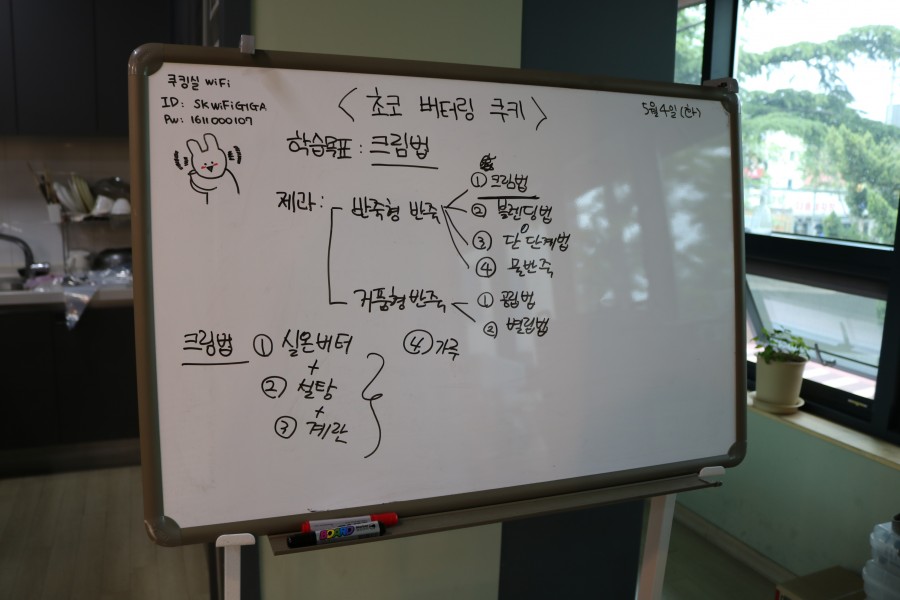 쿠킹실 WiFi
ID: SKWiFiG1GA
Pw: 1611000107
<초코 버터링 쿠키>
5월 4일 (화)
학습목표 : 크림법
제과 :
반죽형 반죽
① 크림법
② 블렌딩법
③ 단단계법
④ 물반죽
거품형 반죽
① 공립법
② 별립법
크림법 ① 실온버터
+
② 설탕
+
③ 계란
④ 가루